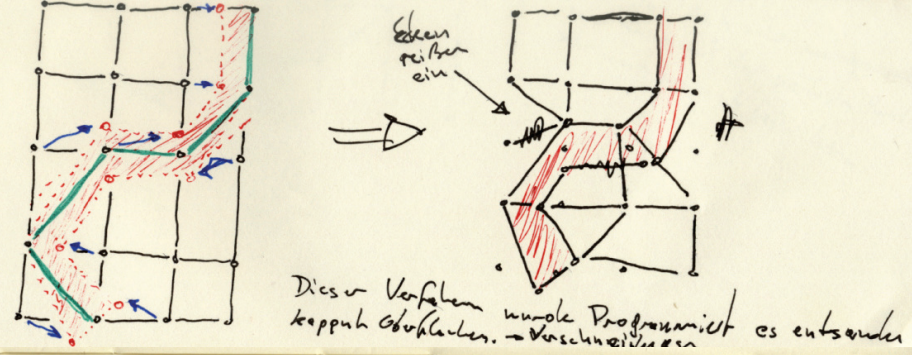 Ecken
reißen
ein
Dieser Verfahren wurde Programmiert es entstanden
kapputte Oberflächen. → Verschneidungen